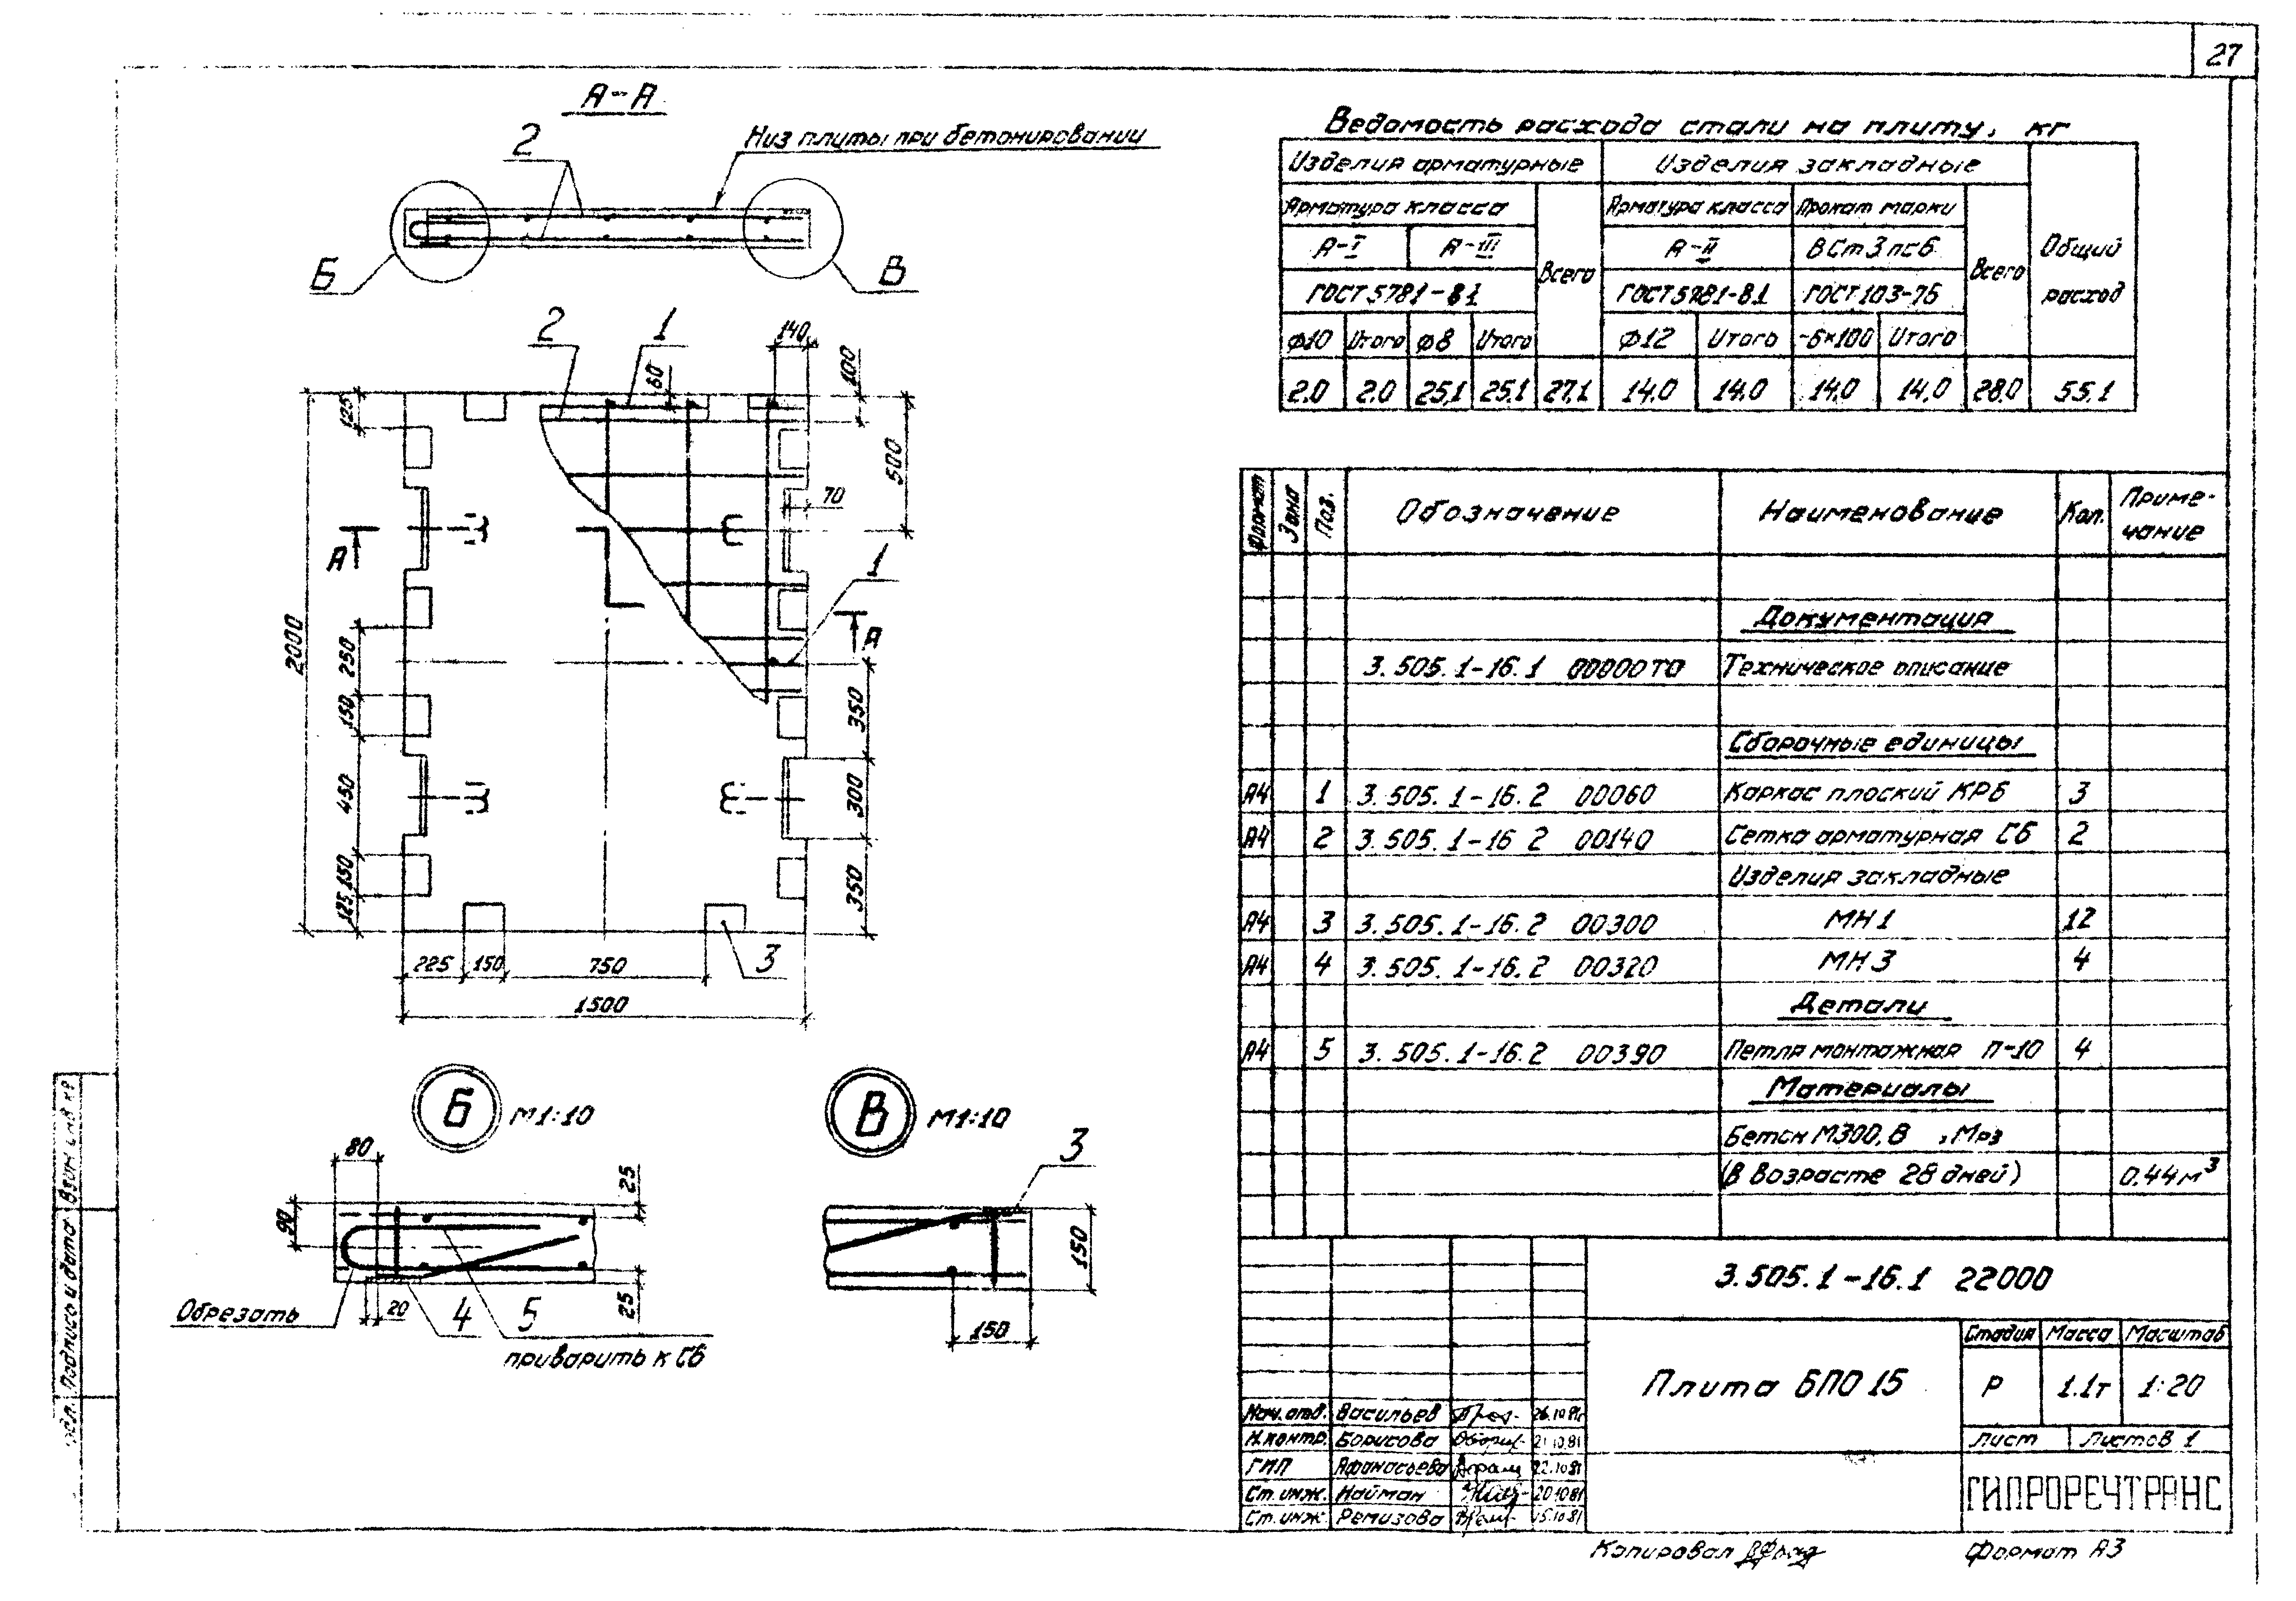 27
А-А
2
Низ плиты при бетонировании
Б
В
2
1
140
60
100
125
500
70
А
1
А
2000
250
150
450
150
125
350
300
350
3
225
150
750
1500
Б М1:10
80
25
90
Обрезать
20
4
5
25
приварить к С6
В М1:10
3
150
150
Ведомость расхода стали на плиту, кг
Изделия арматурные Изделия закладные Общий расход
Арматура класса Всего Арматура класса Прокат марки Всего
А-I А-III А-II ВСт3пс6
ГОСТ 5781-81 ГОСТ 5781-81 ГОСТ 103-76
Ф10 Итого Ф8 Итого Ф12 Итого -6×100 Итого
2.0 2.0 25,1 25.1 27,1 14.0 14.0 14.0 14.0 28.0 55.1
Формат Зона Поз. Обозначение Наименование Кол. Приме-
чание
Документация
3.505.1-16.1 00000ТО Техническое описание
Сборочные единицы
А4 1 3.505.1-16.2 00060 Каркас плоский КР6 3
А4 2 3.505.1-16 2 00140 Сетка арматурная С6 2
Изделия закладные
А4 3 3.505.1-16.2 00300 МН1 12
А4 4 3.505.1-16.2 00320 МН3 4
Детали
А4 5 3.505.1-16.2 00390 Петля монтажная П-10 4
Материалы
Бетон М300, В , Мрз
(в возрасте 28 дней) 0.44м³
3.505.1-16.1 22000
Плита БПО 15
Стадия Масса Масштаб
Р 1.1т 1:20
Лист Листов 1
ГИПРОРЕЧТРАНС
Нач. отд. Васильев
Н.контр. Борисова 21.10.81
ГИП Афанасьева 22.10.81
Ст. инж. Найман 20.10.81
Ст. инж. Ремизова
Копировал
Формат А3
Подпись и дата